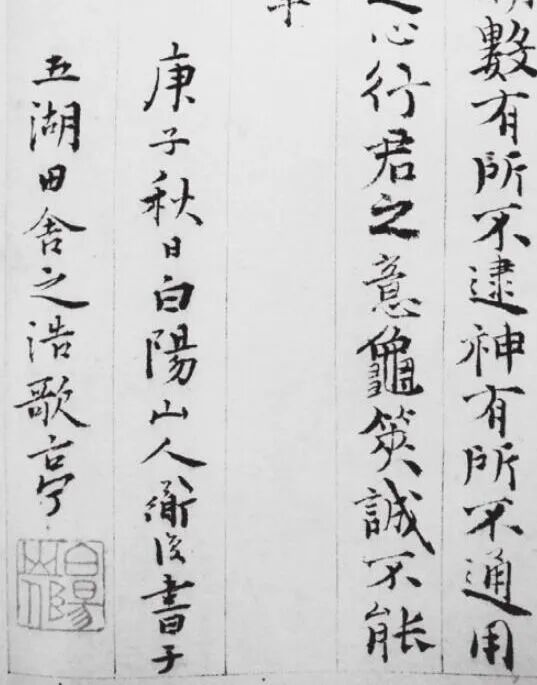 數有所不逮神有所不通用
之心行君之意龜筴誠不能
庚子秋日白陽山人衜復書于
五湖田舍之浩歌亭
白陽山人